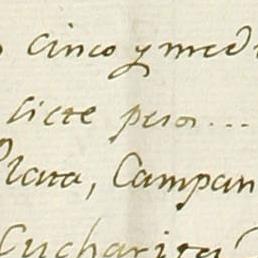 cinco y med
siete pesos...
Plata, Campan
Cucharita